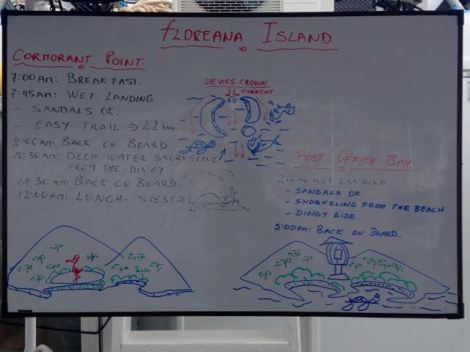 FLOREANA ISLAND
CORMORANT POINT.
7:00AM: BREAKFAST.
7:45AM: WET LANDING
- SANDALS OK.
- EASY TRAIL → 2.2 km
10:00AM BACK ON BOARD
10:30AM DEEP WATER SNORKELING
FROM THE DINGY
11:30AM BACK ON BOARD.
12:00AM: LUNCH - SIESTA
DEVILS CROWN
CURRENT
POST OFFICE BAY
- SANDALS OK.
- SNORKELING FROM THE BEACH
- DINGY RIDE
5:00PM: BACK ON BOARD.